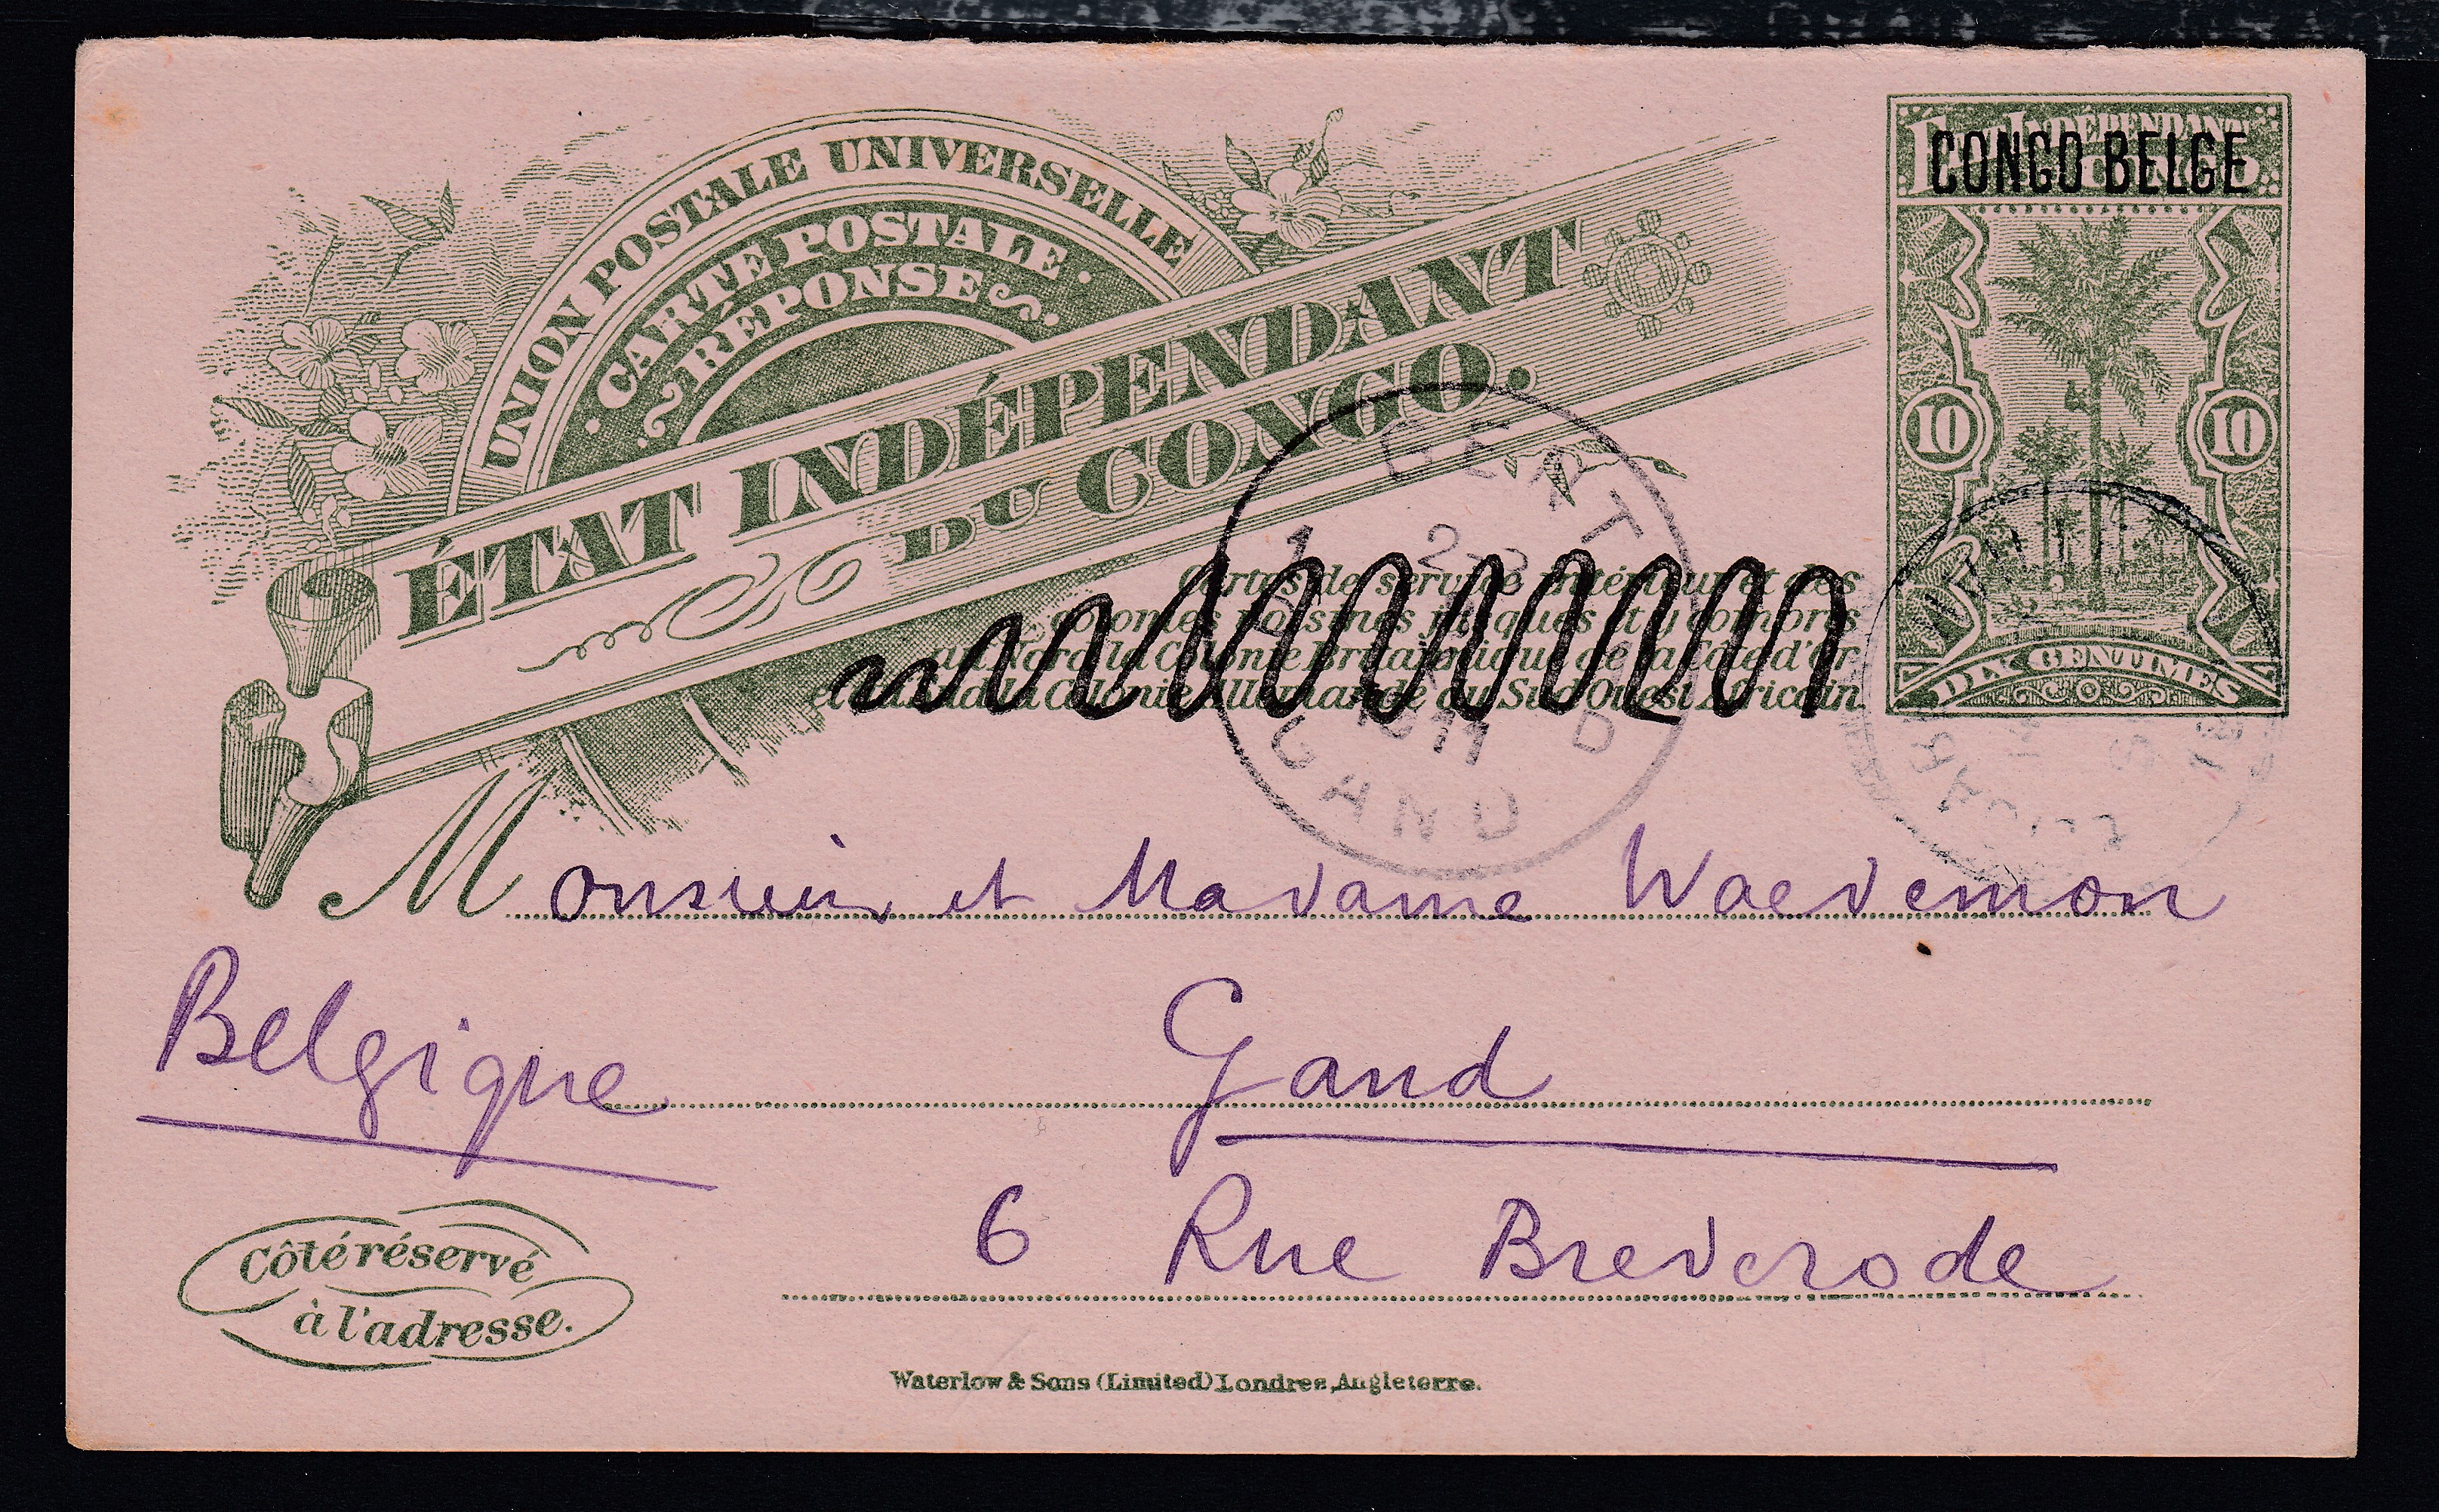 UNION POSTALE UNIVERSELLE
CARTE POSTALE
RÉPONSE
ÉTAT INDÉPENDANT
DU CONGO.
CONGO BELGE
10 10
DIX CENTIMES
Cartes de service intérieur et des
colonies voisines jusques et y compris
au Nord la Colonie Britannique de la Côte d'or
et au Sud la Colonie Allemande du Sud Ouest Africain
GENT
1911
GAND
Monsieur et Madame Waedemon
Belgique Gand
6 Rue Brederode
Côté réservé
à l'adresse.
Waterlow & Sons (Limited) Londres, Angleterre.